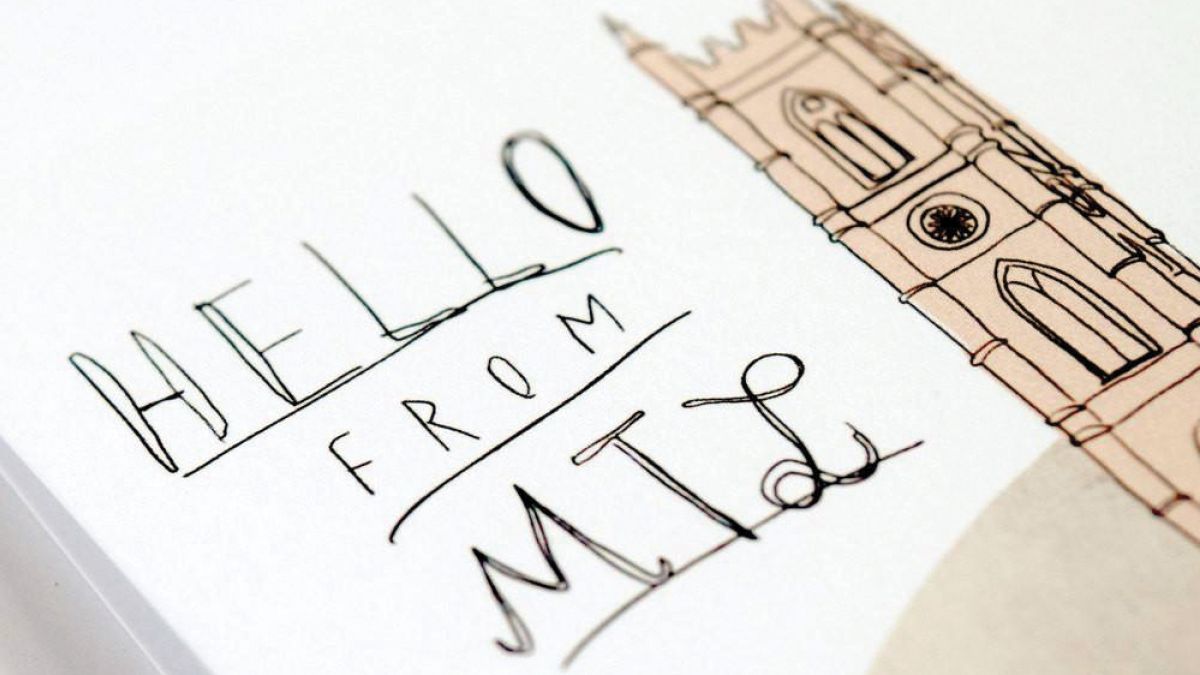 HELLO
FROM
MTL